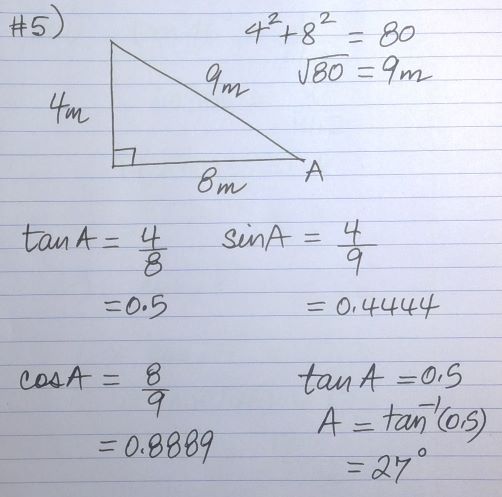 #5)
4² + 8² = 80
√80 = 9m
4m
9m
8m
A
tan A = 4/8
= 0.5
sin A = 4/9
= 0.4444
cos A = 8/9
= 0.8889
tan A = 0.5
A = tan⁻¹(0.5)
= 27°